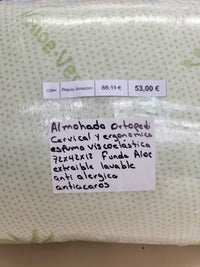 Aloe
Precio Amazon 88,11 € 53,00 €
Almohada Ortopedi
Cervical y ergonomica
espuma viscoelástica
72x42x12 Funda Aloe
extraible lavable
anti alergica
antiacaros